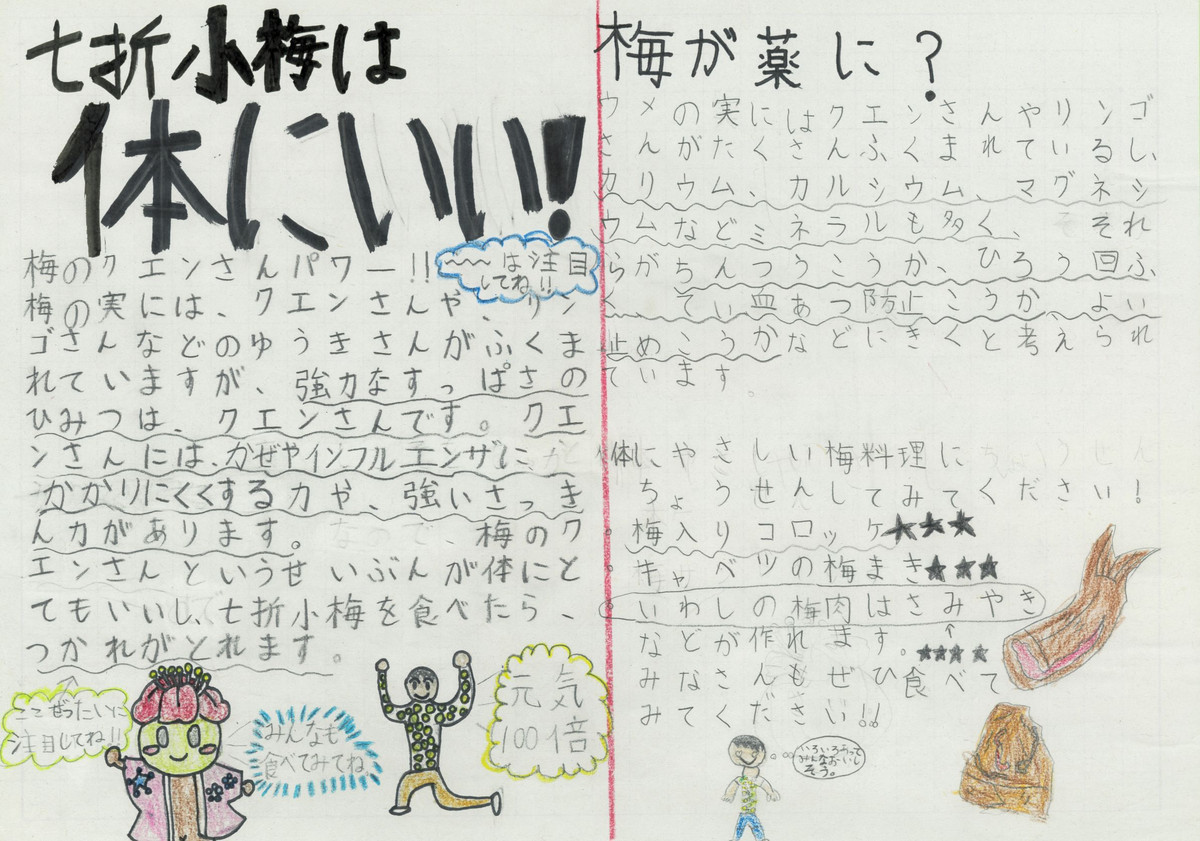 七折小梅は
体にいい!
〜〜〜は注目
してね!!
梅のクエンさんパワー!!
梅の実には、クエンさんや、リン
ゴさんなどのゆうきさんがふくま
れていますが、強力なすっぱさの
ひみつは、クエンさんです。クエ
ンさんには、かぜやインフルエンザに
かかりにくくする力や、強いさっき
ん力があります。梅のク
エンさんというせいぶんが体にと
てもいいし、七折小梅を食べたら、
つかれがとれます。
ここぜったいに
注目してね!!
みんなも
食べてみてね
元気
100倍
梅が薬に?
ウメの実にはクエンさんやリンゴ
さんがたくさんふくまれているし、
カリウム、カルシウム、マグネシ
ウムなどミネラルも多く、それ
らがちんつうこうか、ひろう回ふ
く、てい血あつ防止こうか、よい
止めこうかなどにきくと考えられ
ています。
体にやさしい梅料理に
ちょうせんしてみてください!
・梅入りコロッケ★★★
・キャベツの梅まき★★★
・いわしの梅肉はさみやき
などが作れます。★★★★
みなさんもぜひ食べて
みてください!!
いろいろあって
みんなおいし
そう。